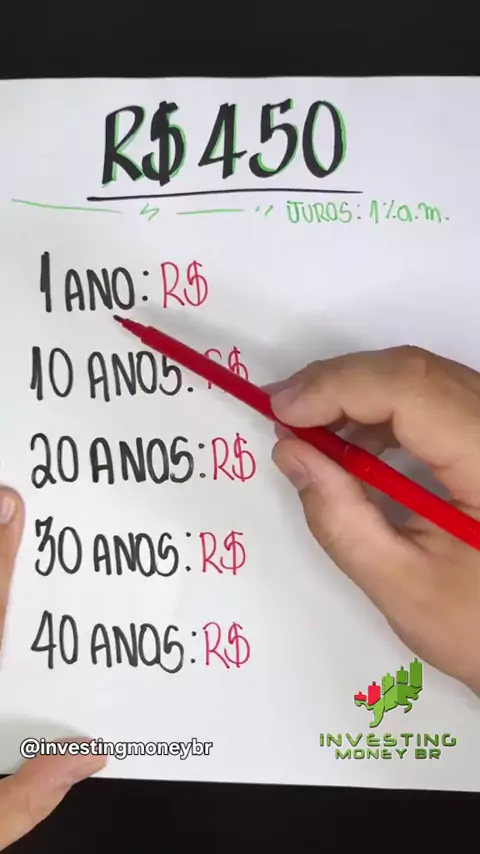 R$ 450
JUROS: 1% a.m.
1 ANO: R$
10 ANOS: R$
20 ANOS: R$
30 ANOS: R$
40 ANOS: R$
INVESTING
MONEY BR
@investingmoneybr